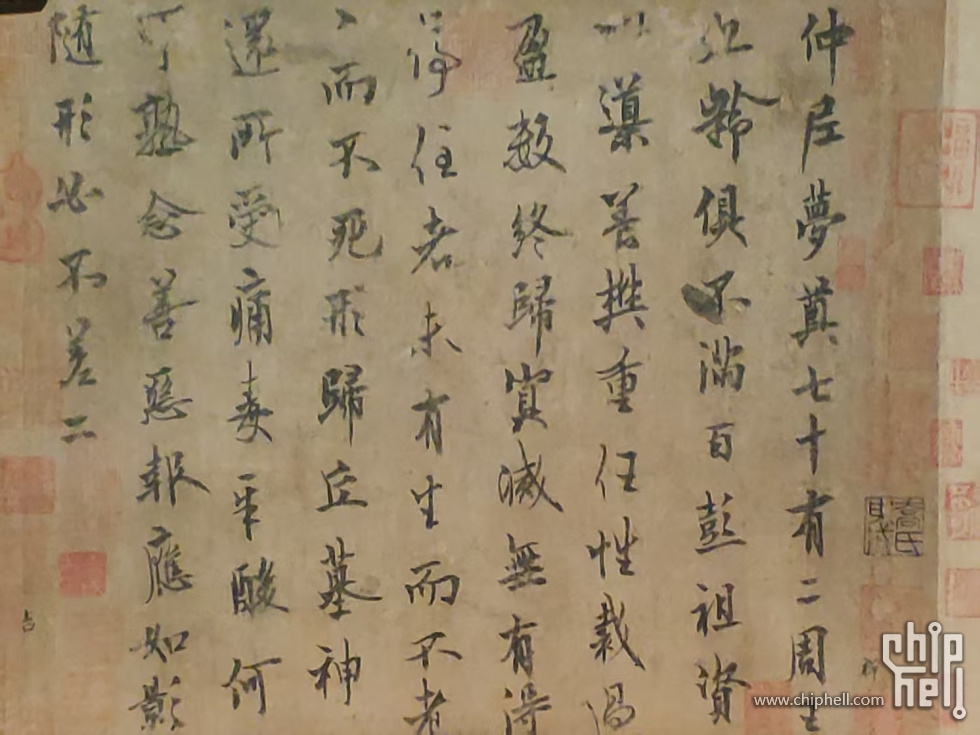 仲尼夢奠七十有二周王
九齡俱不滿百彭祖資
以導養樊重任性裁過
盈數終歸冥滅無有得
停住者未有生而不老
老而不死形歸丘墓神
還所受痛毒辛酸何
可熟念善惡報應如影
隨形必不差二
chip
hell
www.chiphell.com